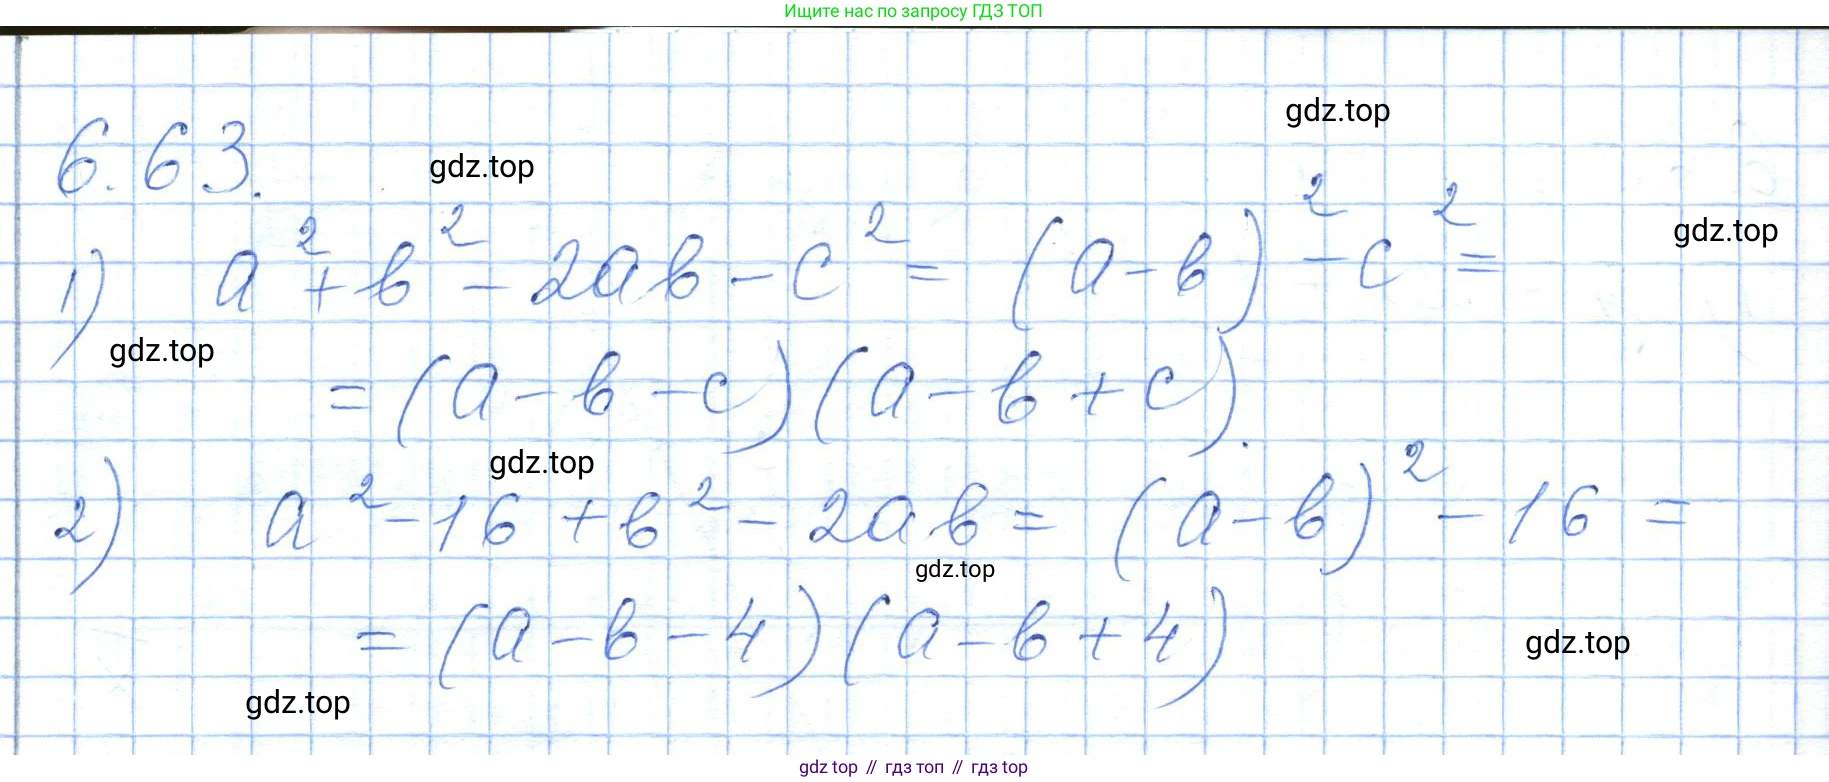 Ищите нас по запросу ГДЗ ТОП
gdz.top
6.63.
gdz.top
1) a² + b² - 2ab - c² = (a - b)² - c² =
gdz.top
gdz.top
= (a - b - c)(a - b + c).
gdz.top
2) a² - 16 + b² - 2ab = (a - b)² - 16 =
gdz.top
= (a - b - 4)(a - b + 4)
gdz.top
gdz.top
gdz top // гдз топ // гдз top